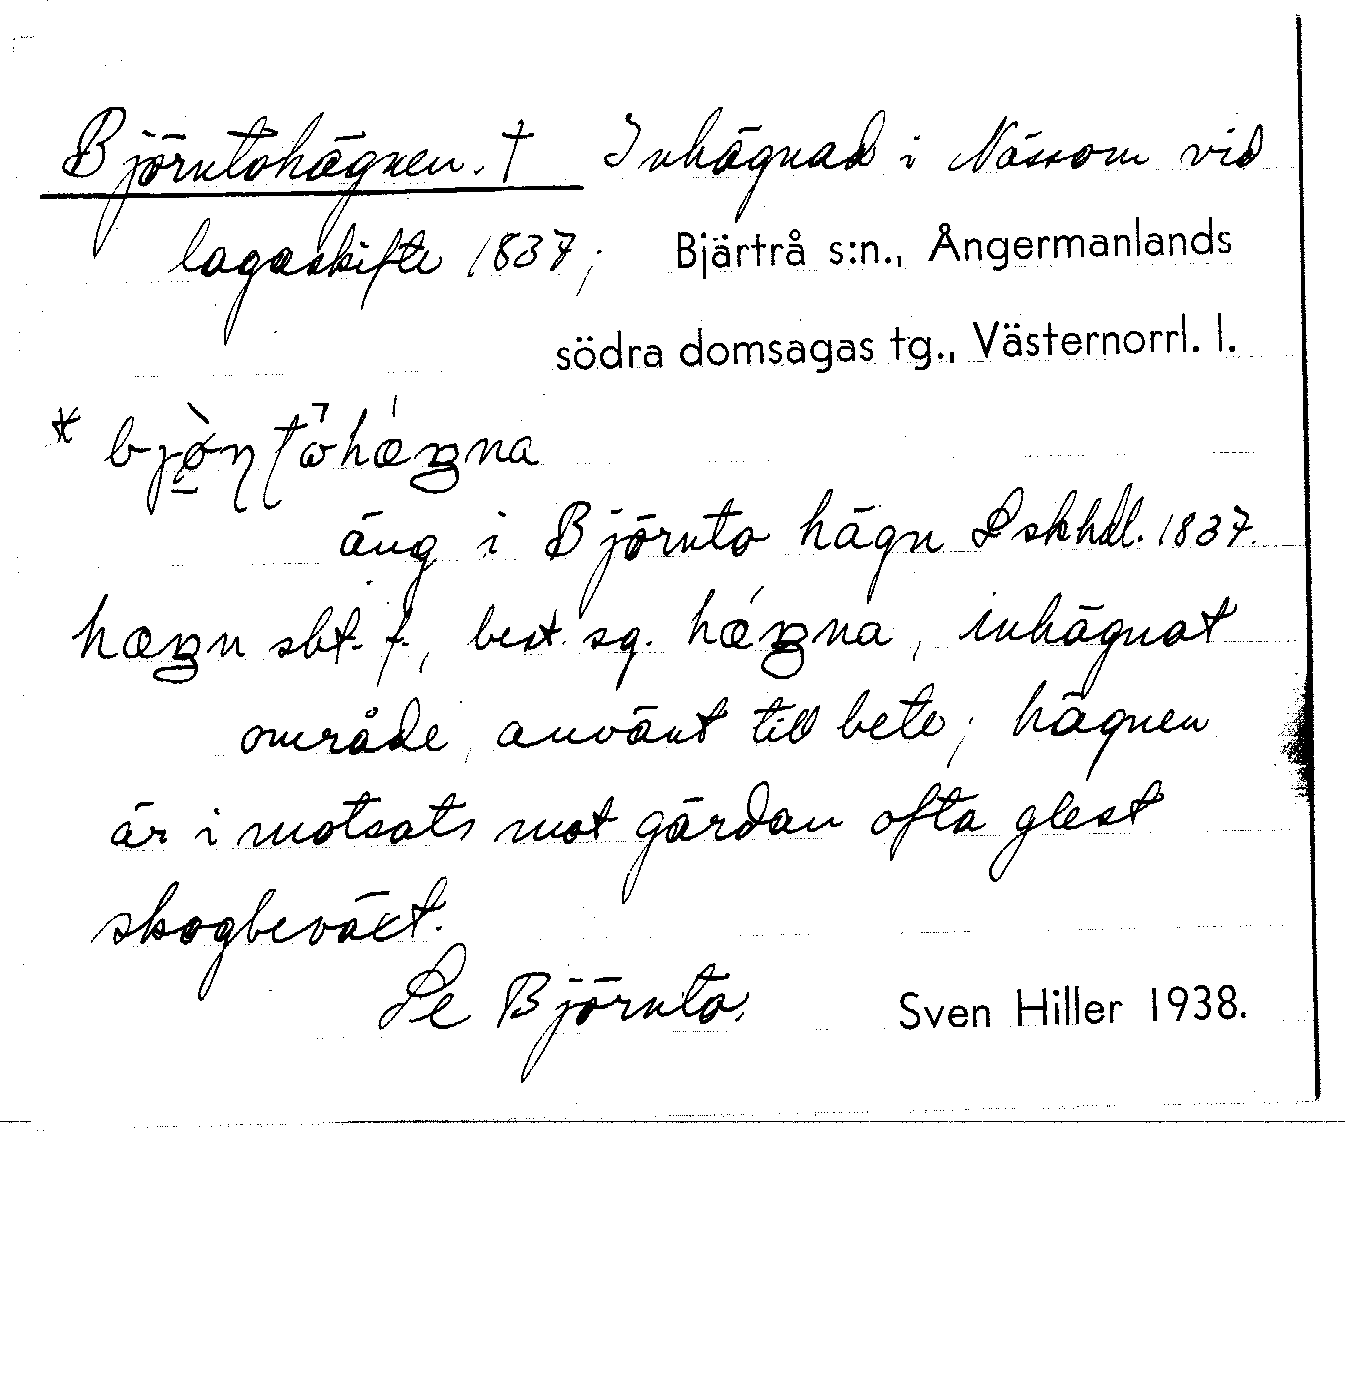 Björntohägnen. † Inhägnad i Nässom vid
lagaskifte 1837; Bjärtrå s:n., Ångermanlands
södra domsagas tg., Västernorrl. l.
* bjø̀ɳʈω̄hǽgna
äng i Björnto hägn Lskhdl. 1837.
hægn sbt. f., best. sg. hǽgna, inhägnat
område, använt till bete; hägnen
är i motsats mot gärdan ofta glest
skogbeväxt.
Se Björnto. Sven Hiller 1938.